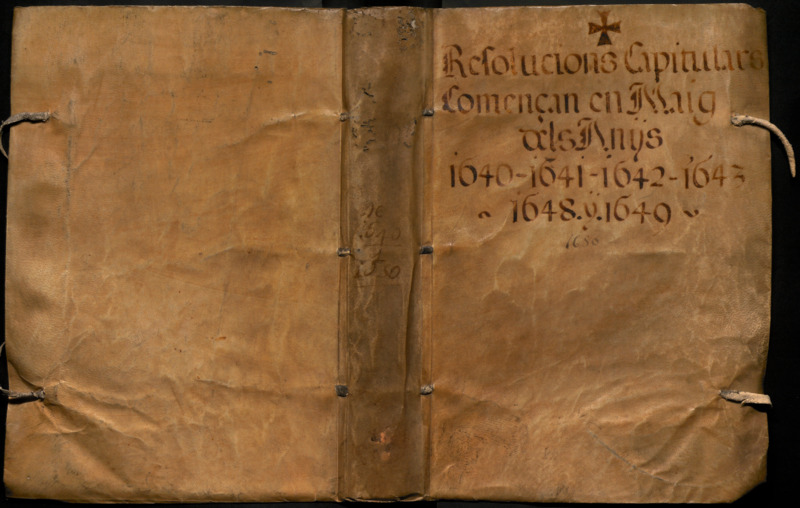 Resolucions Capitulars
Comencan en Maig
dels Anÿs
1640-1641-1642-1643
1648.ÿ.1649
1650
1640